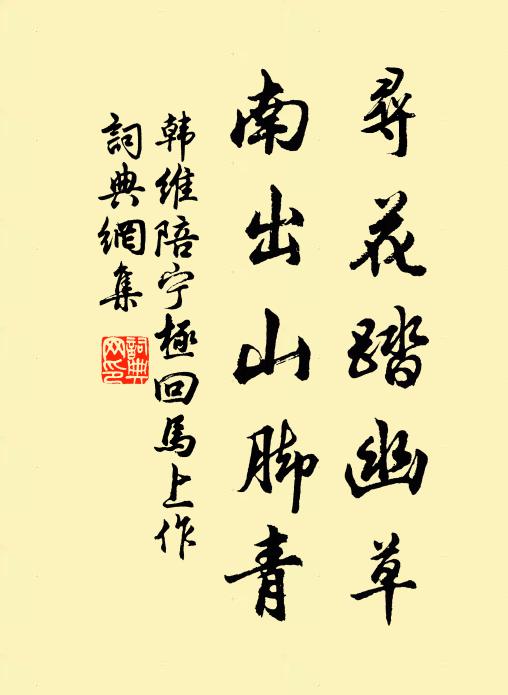 尋花踏幽草
南出山脚青
韩維陪宁極回馬上作
詞典網集
詞典
网印